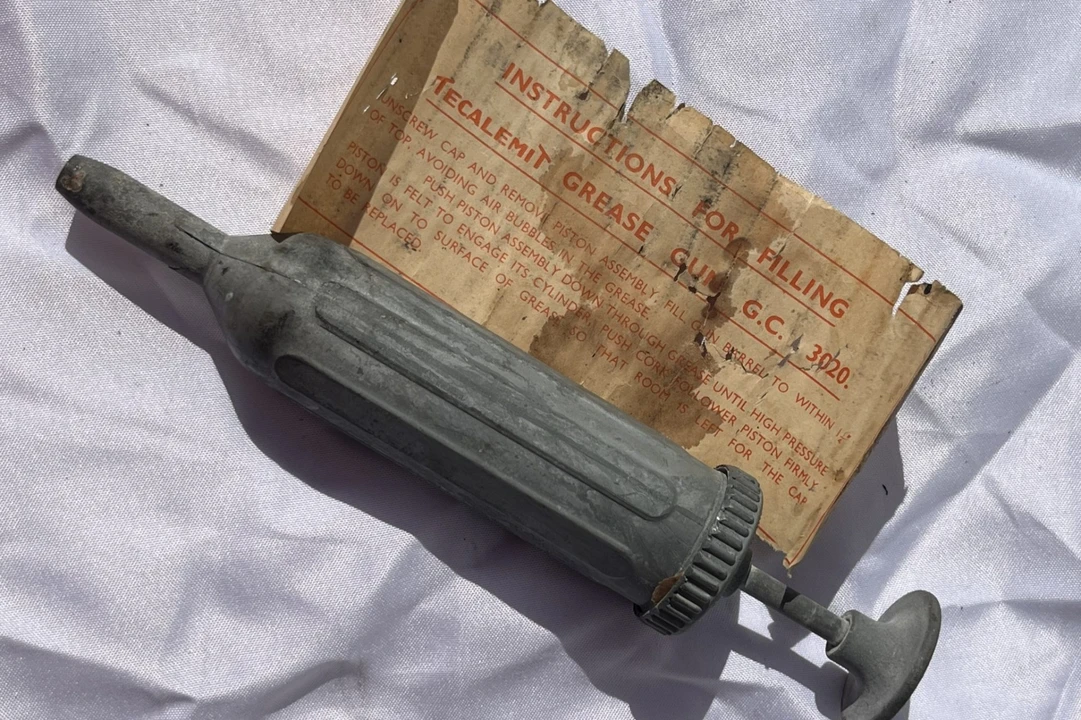 INSTRUCTIONS FOR FILLING
TECALEMIT GREASE GUN G.C. 3020.
UNSCREW CAP AND REMOVE PISTON ASSEMBLY. FILL GUN BARREL TO WITHIN 1½"
OF TOP, AVOIDING AIR BUBBLES IN THE GREASE.
PUSH PISTON ASSEMBLY DOWN THROUGH GREASE UNTIL HIGH PRESSURE
PISTON IS FELT TO ENGAGE ITS CYLINDER. PUSH CORK FOLLOWER PISTON FIRMLY
DOWN ON TO SURFACE OF GREASE SO THAT ROOM IS LEFT FOR THE CAP
TO BE REPLACED.